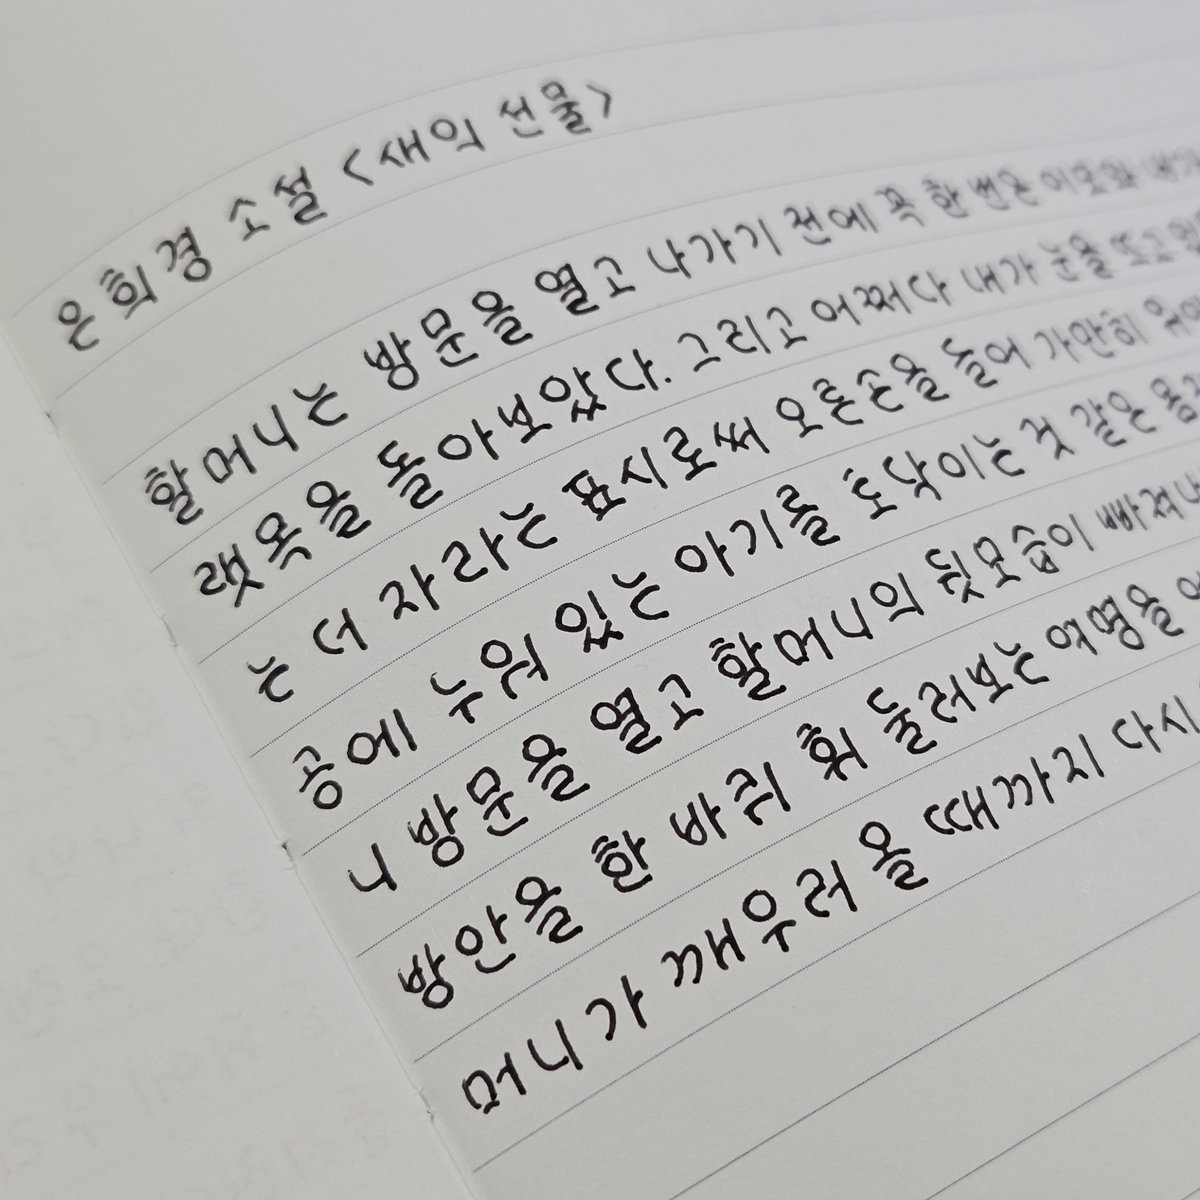 은희경 소설 <새의 선물>
할머니는 방문을 열고 나가기 전에 꼭 한번은 이모와 내가
랫목을 돌아보았다. 그리고 어쩌다 내가 눈을 뜨고 있
는 더 자라는 표시로써 오른손을 들어 가만히
공에 누워 있는 아기를 토닥이는 것 같은
니 방문을 열고 할머니의 뒷모습이 빠져나
방안을 한 바퀴 휘 둘러보는 여명을
머니가 깨우러 올 때까지 다시